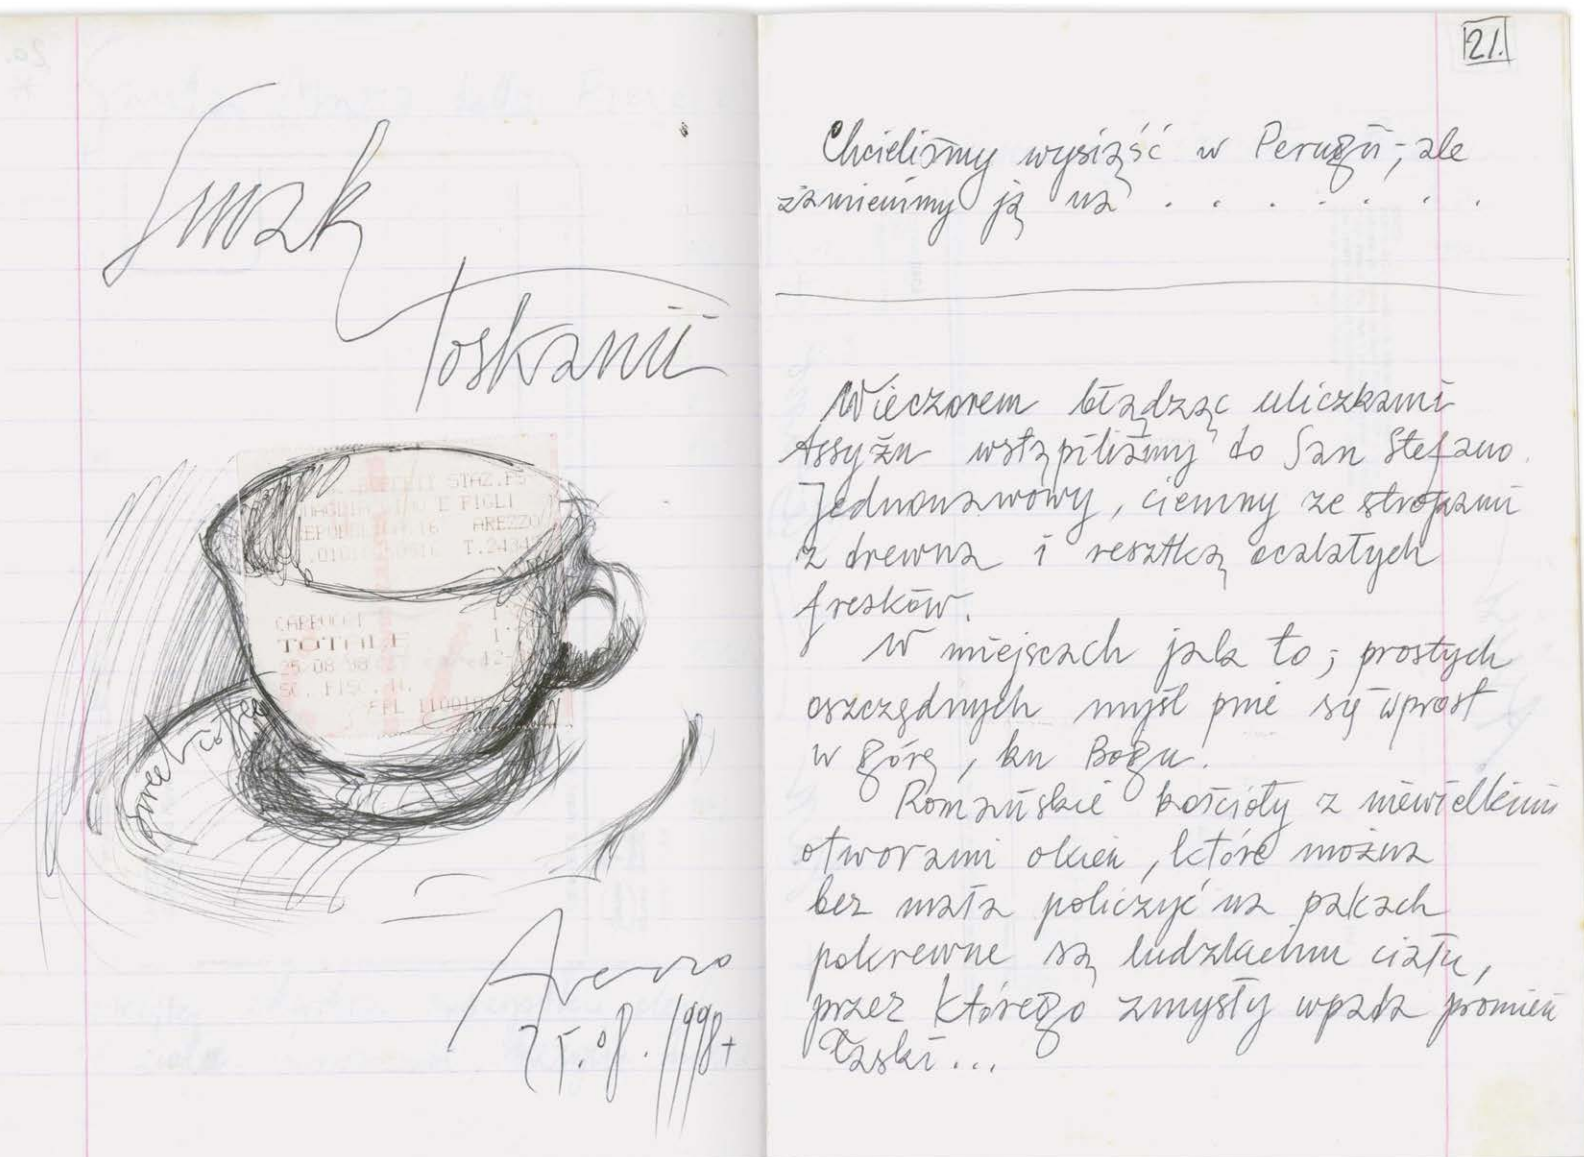 Smak
Toskanii
STAZ.FS
E FIGLI
AREZZO
CAPPUCCI
TOTALE
25-08-98
sweet
Arezzo
25.08.1998+
21.
Chcieliśmy wysiąść w Perugii, ale
zamienimy ją na . . . . . . .
Wieczorem błądząc uliczkami
Assyżu wstąpiliśmy do San Stefano.
Jednonawowy, ciemny ze stropami
z drewna i resztką ocalałych
fresków.
W miejscach jak to; prostych
oszczędnych myśl pnie się wprost
w górę, ku Bogu.
Romańskie kościoły z niewielkimi
otworami okien, które można
bez mała policzyć na palcach
pokrewne są ludzkiemu ciału,
przez którego zmysły wpada promień
Łaski...